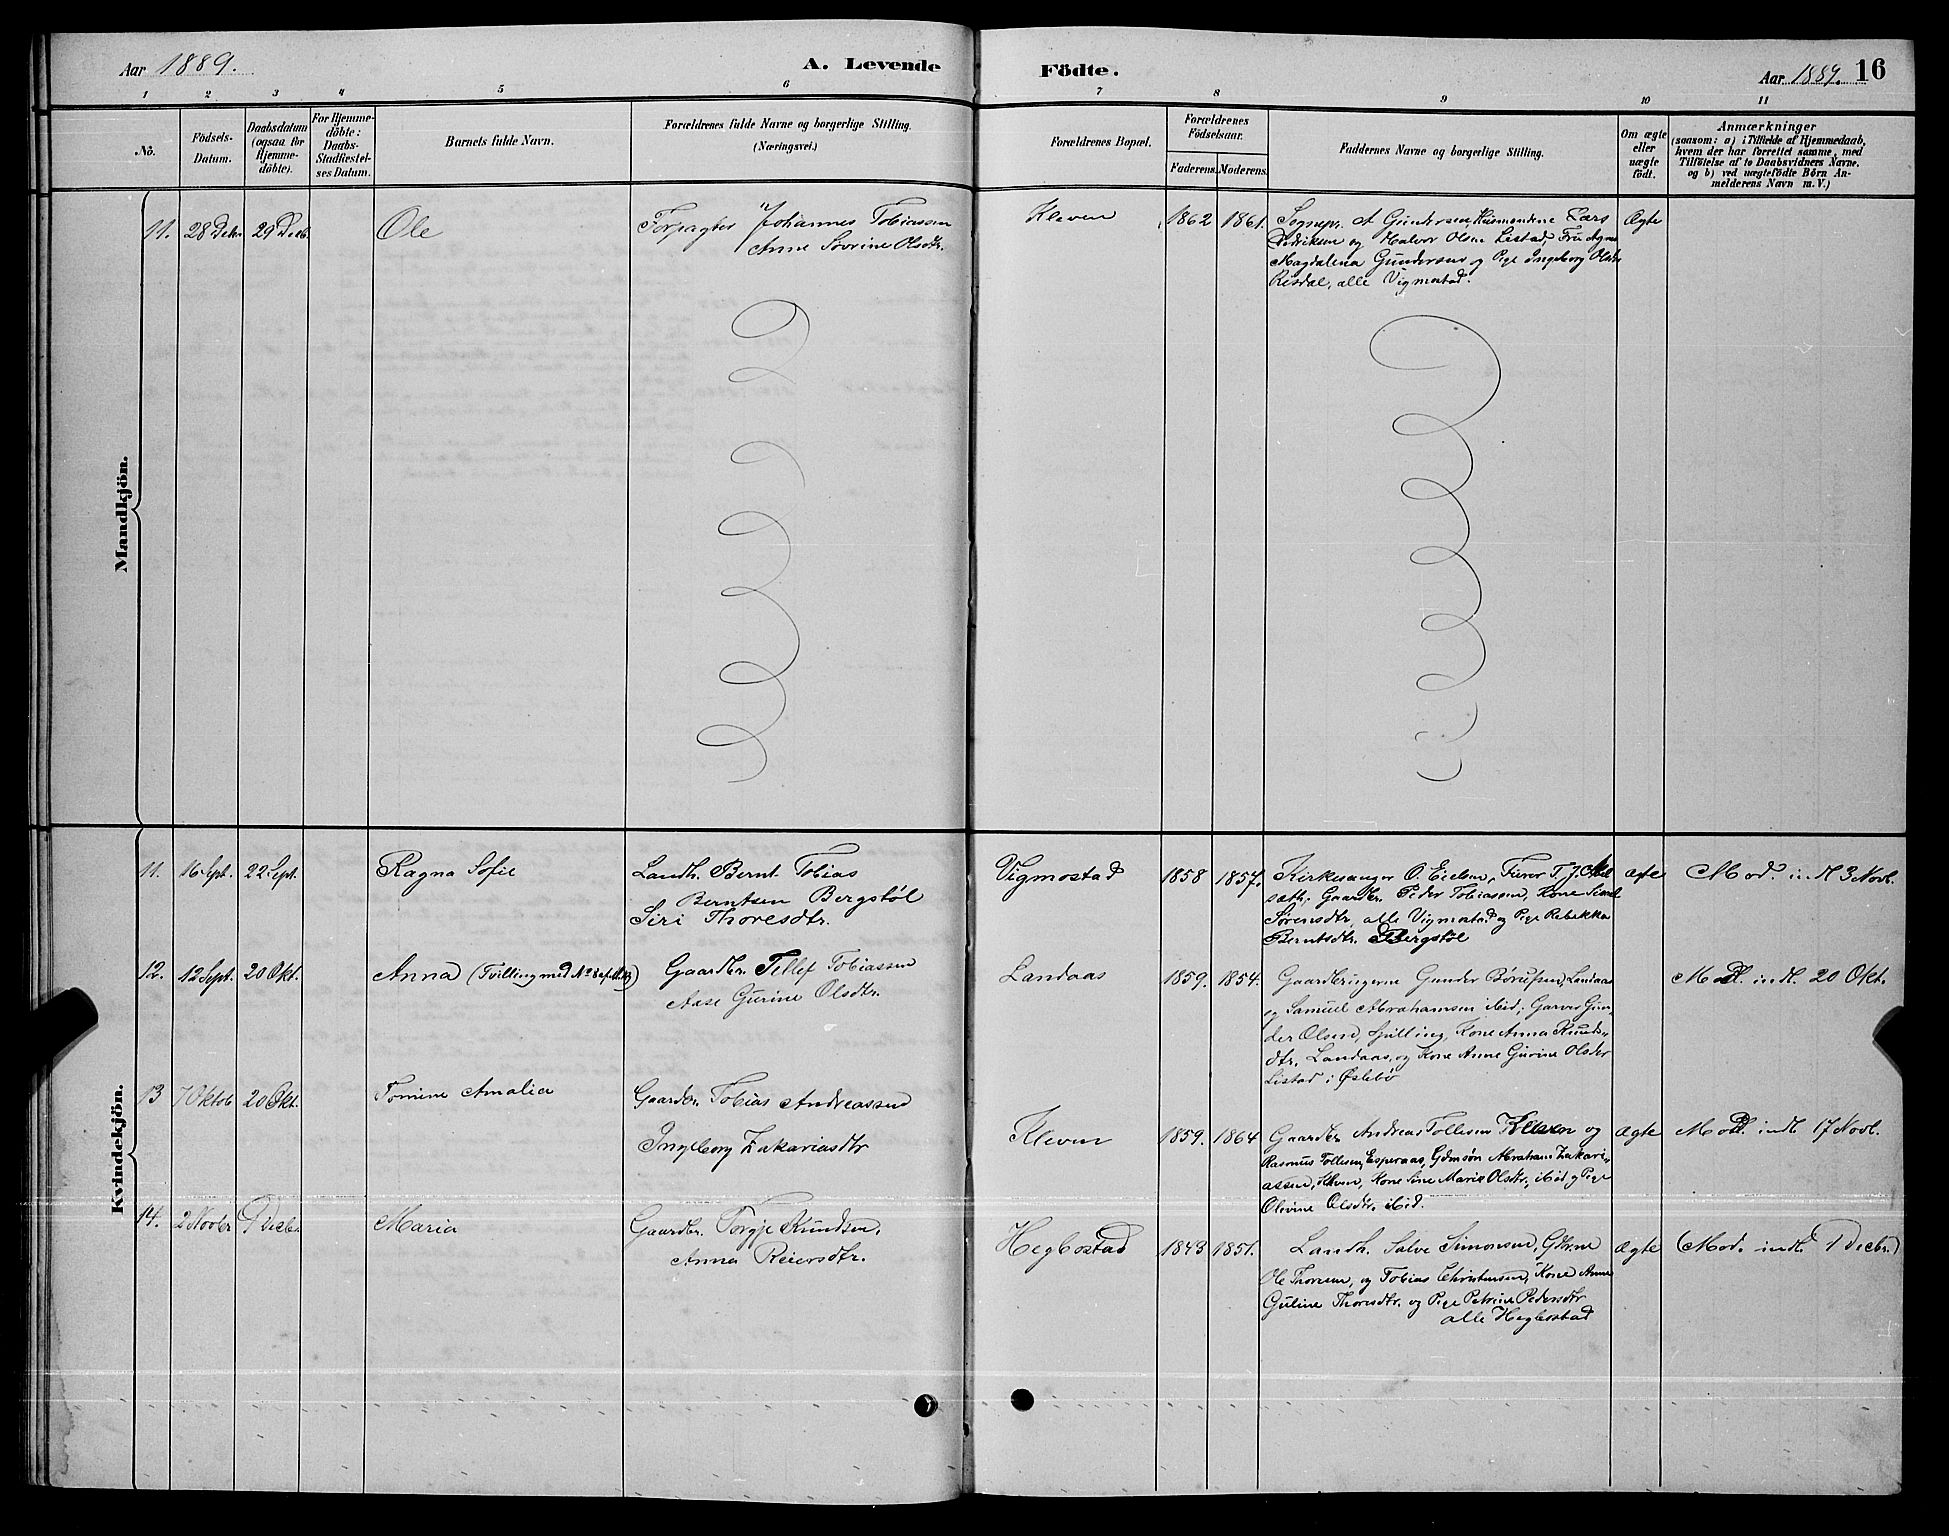 Aar 1889.
A. Levende Födte.
Aar 1889. 16
1 2 3 4 5 6 7 8 9 10 11
No.
Födsels-Datum.
Daabsdatum (ogsaa for Hjemme-döbte).
For Hjemme-döbte: Daabs-Stadfæstel-ses Datum.
Barnets fulde Navn.
Forældrenes fulde Navne og borgerlige Stilling.
(Næringsvei.)
Forældrenes Bopæl.
Forældrenes Födselsaar.
Faderens. Moderens.
Faddernes Navne og borgerlige Stilling.
Om ægte eller uægte födt.
Anmærkninger
(saasom: a) i Tilfælde af Hjemmedaab,
hvem der har forrettet samme, med
Tilföielse af to Daabsvidners Navne,
og b) ved uægtefödte Börn An-
melderens Navn m. V.)
Mandkjön.
11. 28 Decbr 29 Decb. Ole
Forpagter Johannes Tobiassen
Anne Severine Olsdtr.
Kleven 1862 1861.
Sognepr. A Gundersen, Husmændene Lars
Didriksen og Halvor Olsen Listad, Fru Agnes
Magdalena Gundersen og Pige Ingeborg Olsdtr
Risdal, alle Vigmostad.
Ægte
Kvindekjön.
11. 16 Sept. 22 Sept. Ragna Sofie
Landh. Bernt Tobias
Berntsen Bergstøl
Siri Thoresdtr.
Vigmostad 1858 1857.
Kirkesanger O. Eielsen, Furer T. J.
sæth, Gaardbr. Peder Tobiassen, Kone
Sørensdtr, alle Vigmostad og Pige Rebekka
Berntsdtr. Bergstøl
Mod. indl 3 Novb.
12. 12 Sept. 20 Okt. Anna (Tvilling med No 8
Gaardbr. Tellef Tobiassen
Aase Gurine Olsdtr.
Landaas 1859. 1854.
Gaardbrugerne Gunder Børufsen, Landaas
og Samuel Abrahamsen ibid; Garver Gun-
der Olsen, Kone Anna Knuds-
dtr. Landaas, og Kone Anne Gurine Olsdtr
Listad i Øslebø
Mod. indl. 20 Okt.
13 7 Oktob 20 Okt. Tomine Amalia
Gaardbr. Tobias Andreassen
Ingeborg Zakariasdtr
Kleven 1859. 1864
Gaardbr. Andreas Tollefsen Kleven og
Rasmus Tollefsen, Esperaas, Gdmsøn Abraham Zakari-
assen, Kleven, Kone Sine Marie Olsdtr, ibid og Pige
Olivine Olsdtr. ibid.
Ægte
Mod. indl. 17 Novb.
14. 2 Novbr 1 Decbr. Maria
Gaardbr. Torgje Knudsen,
Anna Reiersdtr.
Hegbostad 1843 1851.
Landh. Salve Simonsen, Gdbrne
Ole Thoresen, og Tobias Christensen, Kone Anne
Guline Thoresdtr. og Pige Petrine Pedersdtr
alle Hegbostad
Ægte
(Mod. indl. 1 Decbr.)